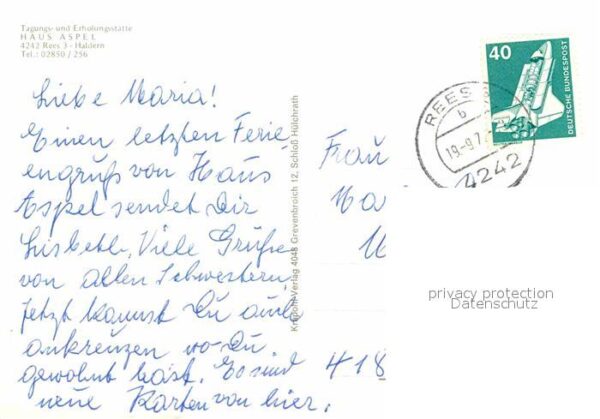 Tagungs- und Erholungsstätte
HAUS ASPEL
4242 Rees 3 - Haldern
Tel.: 02850 / 256
Liebe Maria!
Einen letzten Ferie
engruß von Haus
Aspel sendet Dir
Lisbeth. Viele Grüße
von allen Schwestern
Jetzt kannst Du auch
ankreuzen wo Du
gewohnt hast. Es sind
neue Karten von hier.
Verlag 4048 Grevenbroich 12, Schloß Hülchrath
40
DEUTSCHE BUNDESPOST
REES
b
19-9.7
4242
Frau
Ma
418
privacy protection
Datenschutz